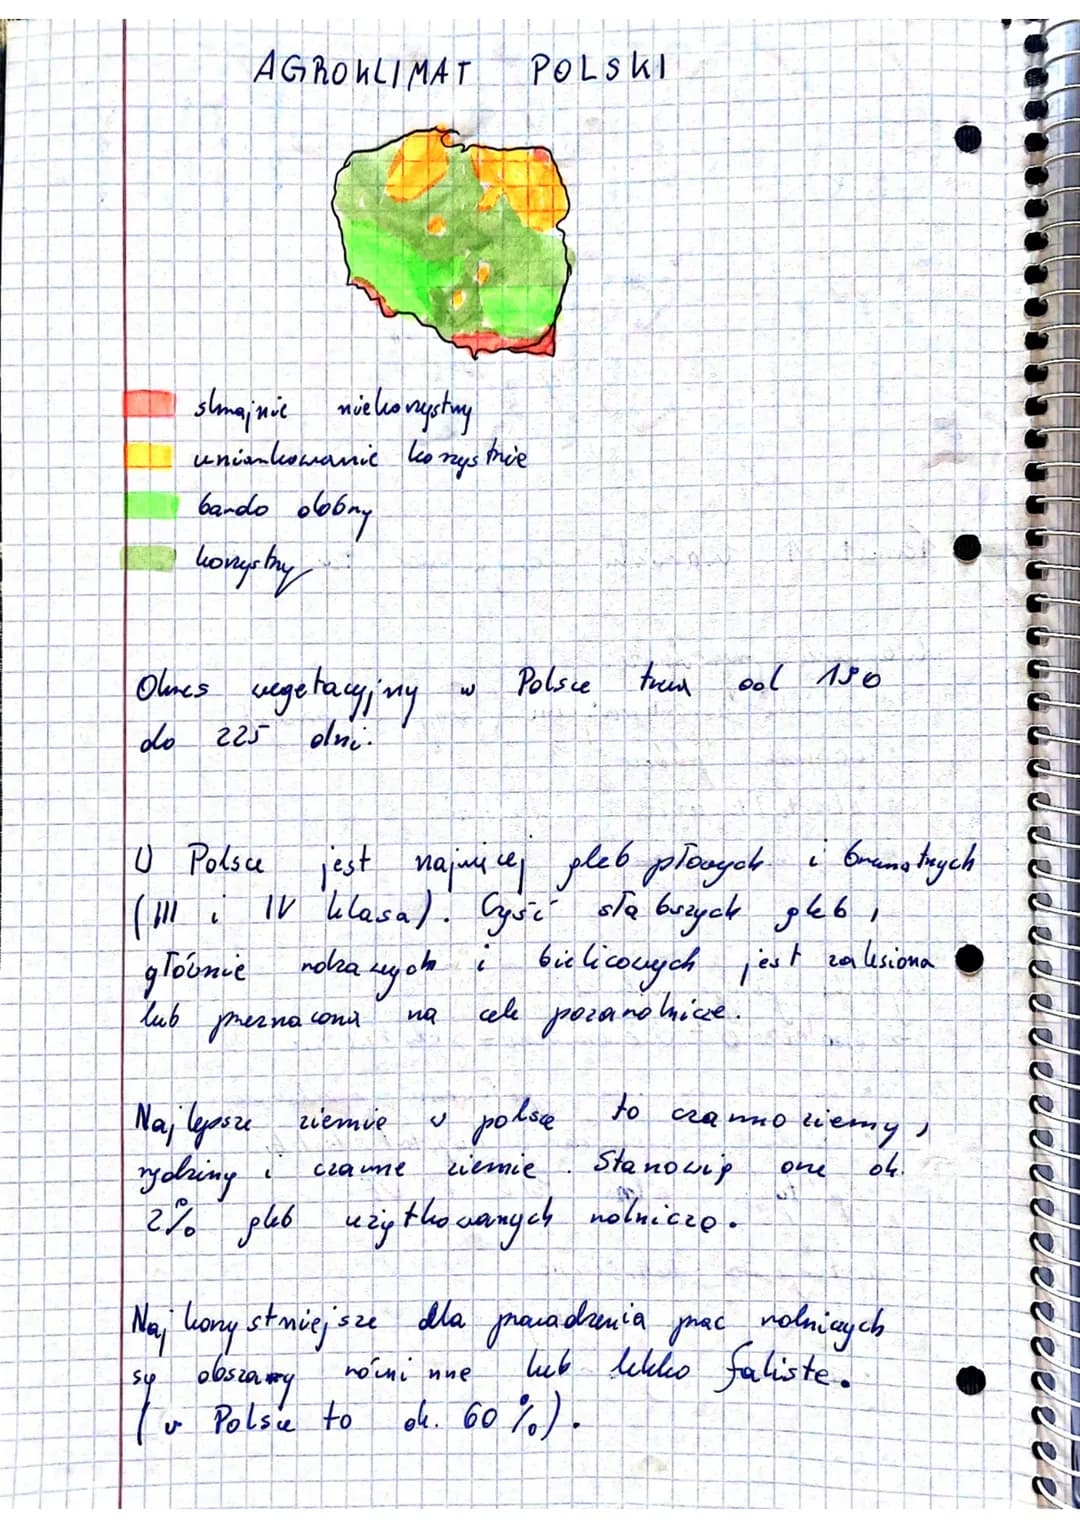 AGROKLIMAT POLSKI
skrajnie niekorzystny
umiarkowanie korzystnie
bardo dobry
korzystny
Okres wegetacyjny w Polsce trwa od 190
do 225 dni.
W Polsce jest najwięcej gleb płowych i brunatnych
(III i IV klasa). Część słabszych gleb,
głównie rdzawych i bielicowych jest zalesiona
lub przeznaczona na cele pozarolnicze.
Najlepsze ziemie w polsce to czarnoziemy,
rędziny i czarne ziemie. Stanowią one ok.
2% gleb użytkowanych rolniczo.
Najkorzystniejsze dla prowadzenia prac rolniczych
są obszary równinne lub lekko faliste.
(w Polsce to ok. 60%).